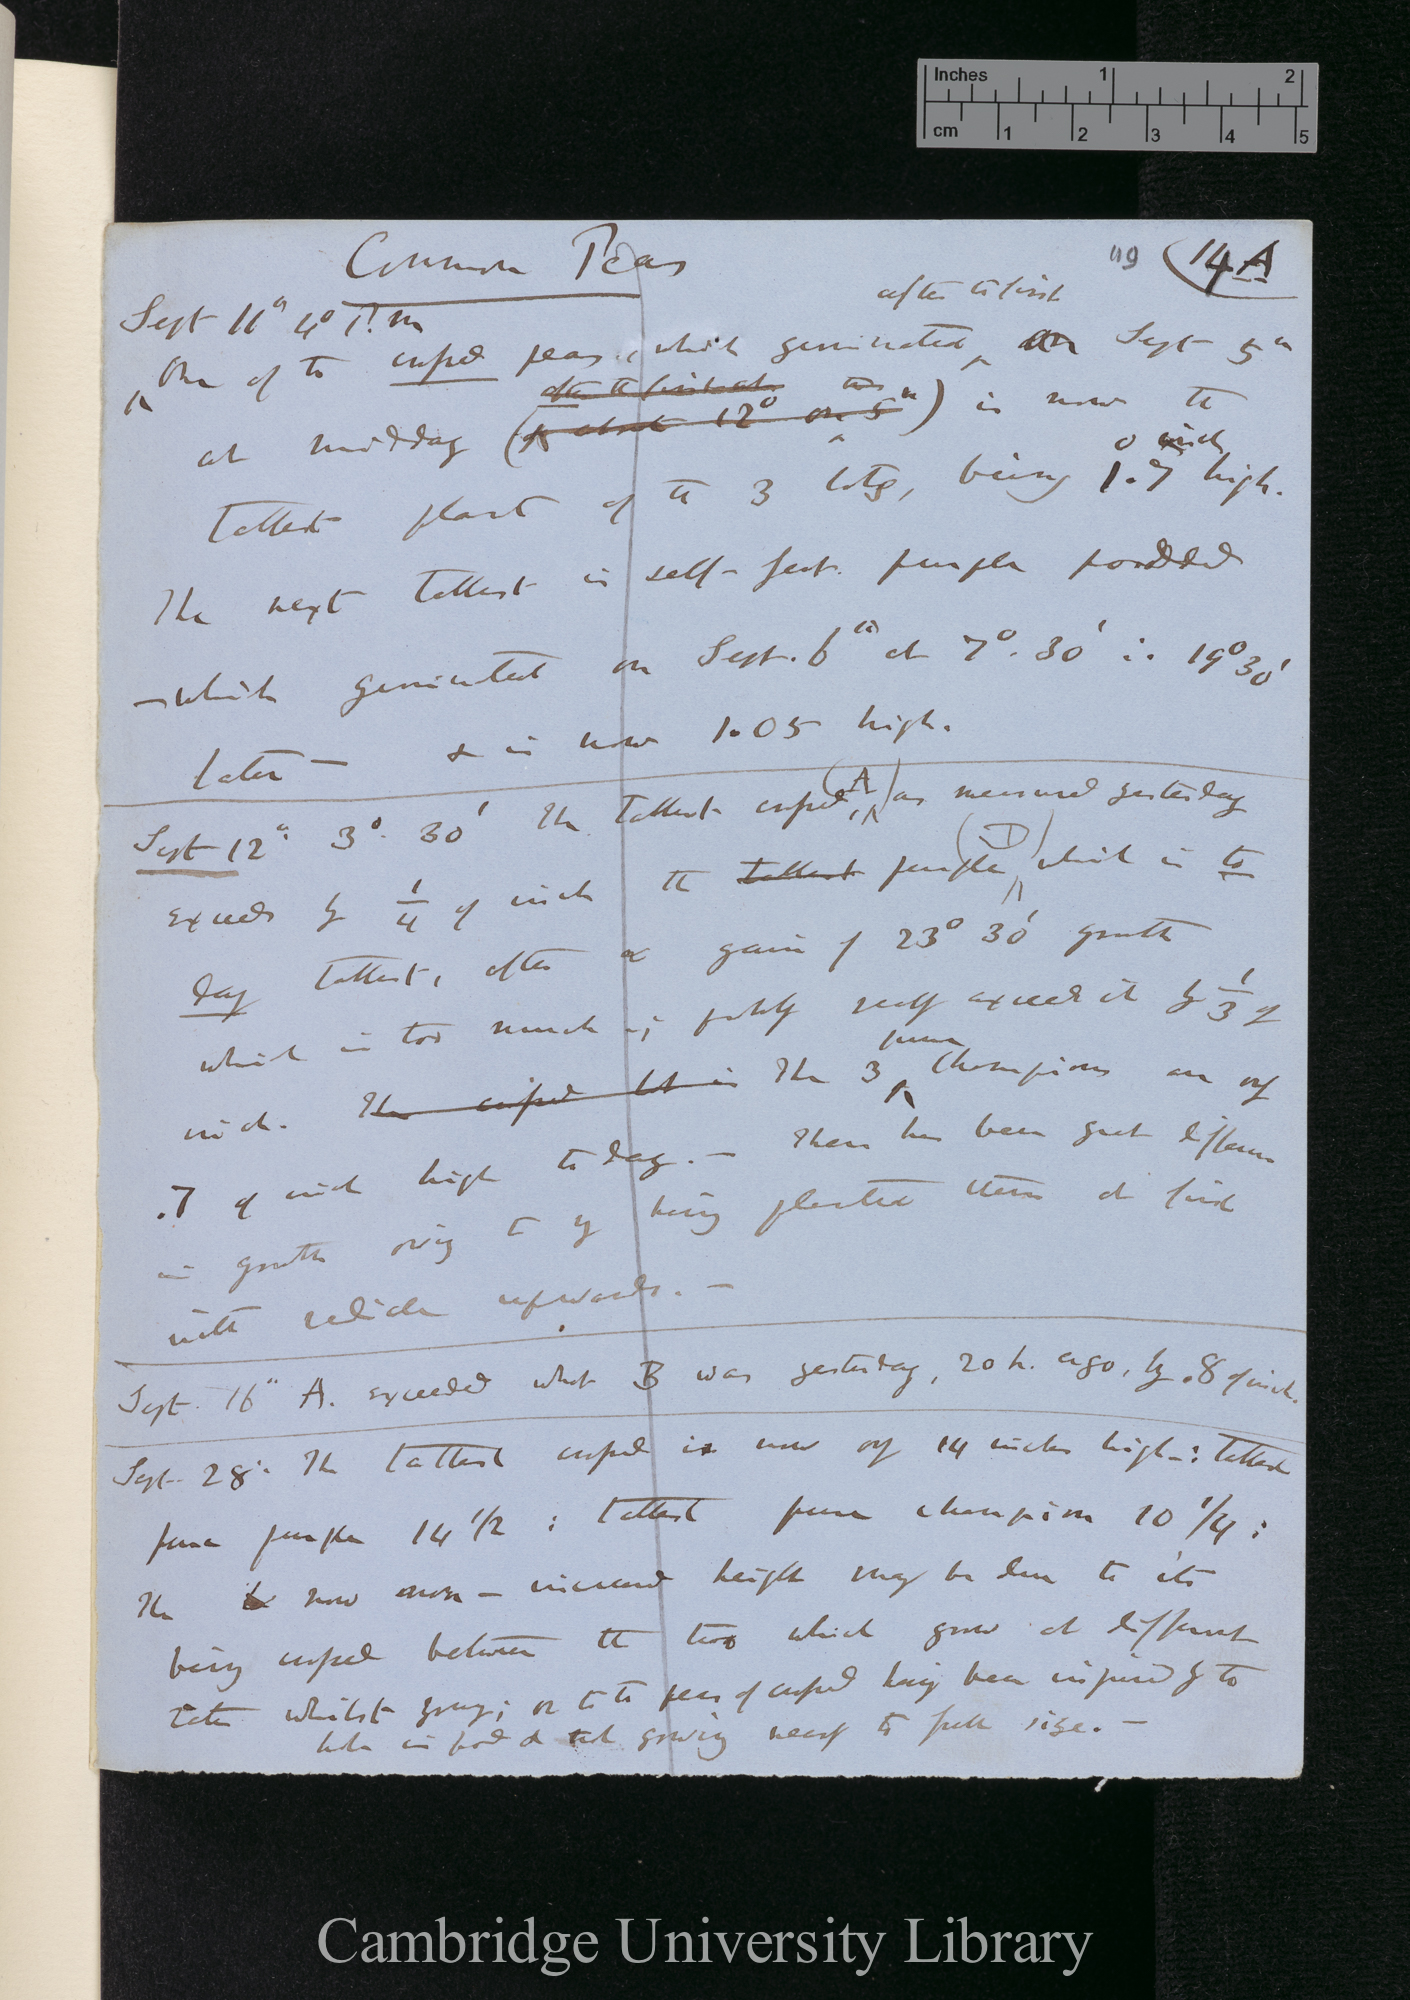 Inches 1 2
cm 1 2 3 4 5
Common Peas
119 (14 A
after the first
Sept 11th 4° P.m
One of the crossed peas, which germinated, on Sept 5th
after the first
at midday (about 12° on 5th) is now the
inch
tallest plant of the 3 lots, being 1.7 high.
The next tallest is self-fert. purple podded
— which germinated on Sept. 6th at 7°. 30' i. 19° 30'
later — & is now 1.05 high.
Sept 12th 3°. 30' The tallest crossed (A) as measured yesterday
exceeds by 1/4 of inch the tallest purple (D) which is to
day tallest, after a gain of 23° 30' growth
which is too much; probably really exceeds it by 1/3 of
pure
inch. The crossed lot is The 3 Champions are only
.7 of inch high to day. — There has been great difference
in growth owing to my having planted them at first
with radicle upwards. —
Sept. 16th A. exceeded what B was yesterday, 20 h. ago, by .8 of inch.
Sept. 28th The tallest crossed is now only 14 inches high—: tallest
pure purple 14 1/2 : tallest pure champion 10 1/4 :
The now increased height may be due to its
being crossed between the two which grow at different
rates whilst young; or to the peas of crossed having been injured by the
hole in pod & not growing nearly to full size. —
Cambridge University Library